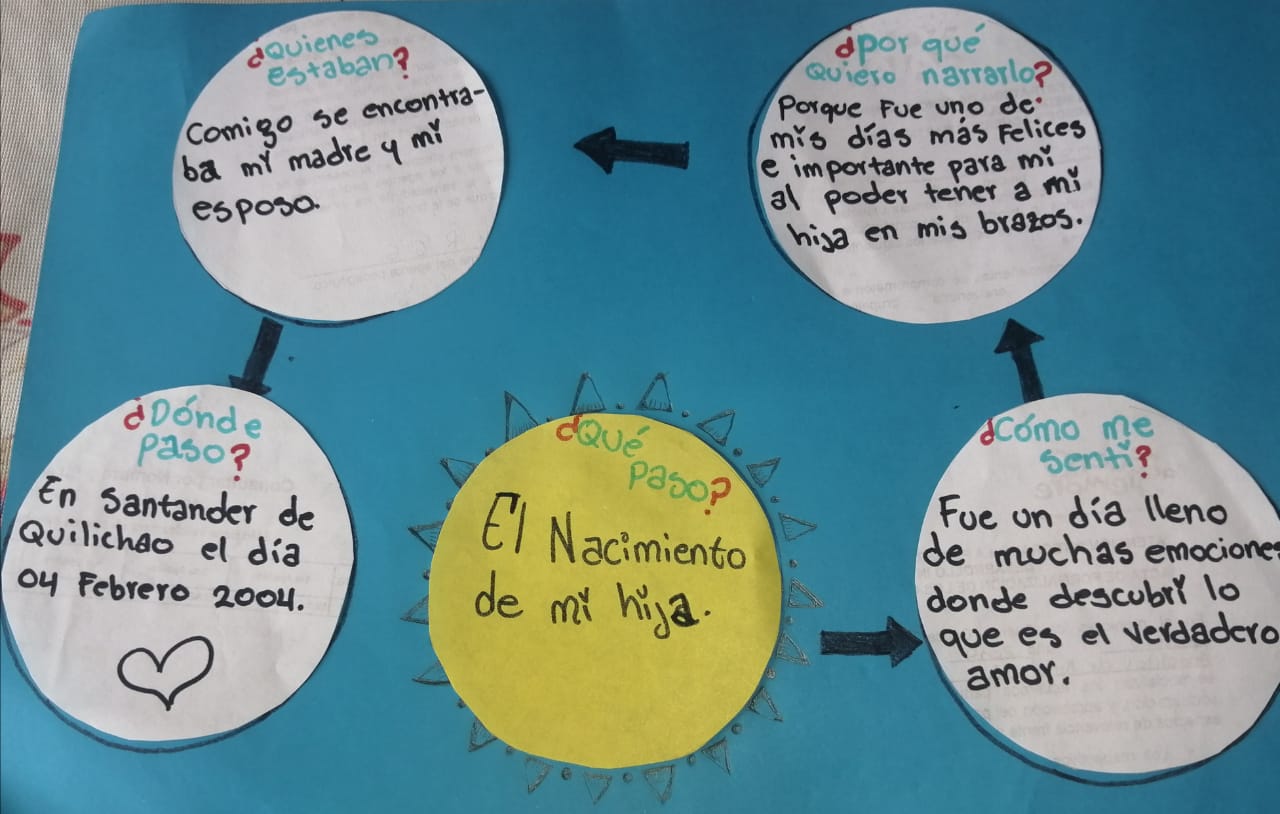 ¿Qué
paso?
El Nacimiento
de mi hija.
¿Cómo me
sentí?
Fue un día lleno
de muchas emociones
donde descubrí lo
que es el verdadero
amor.
¿por qué
Quiero narrarlo?
Porque Fue uno de
mis días más Felices
e importante para mi
al poder tener a mi
hija en mis brazos.
¿Quienes
estaban?
Comigo se encontra-
ba mi madre y mi
esposo.
¿Dónde
paso?
En Santander de
Quilichao el día
04 Febrero 2004.